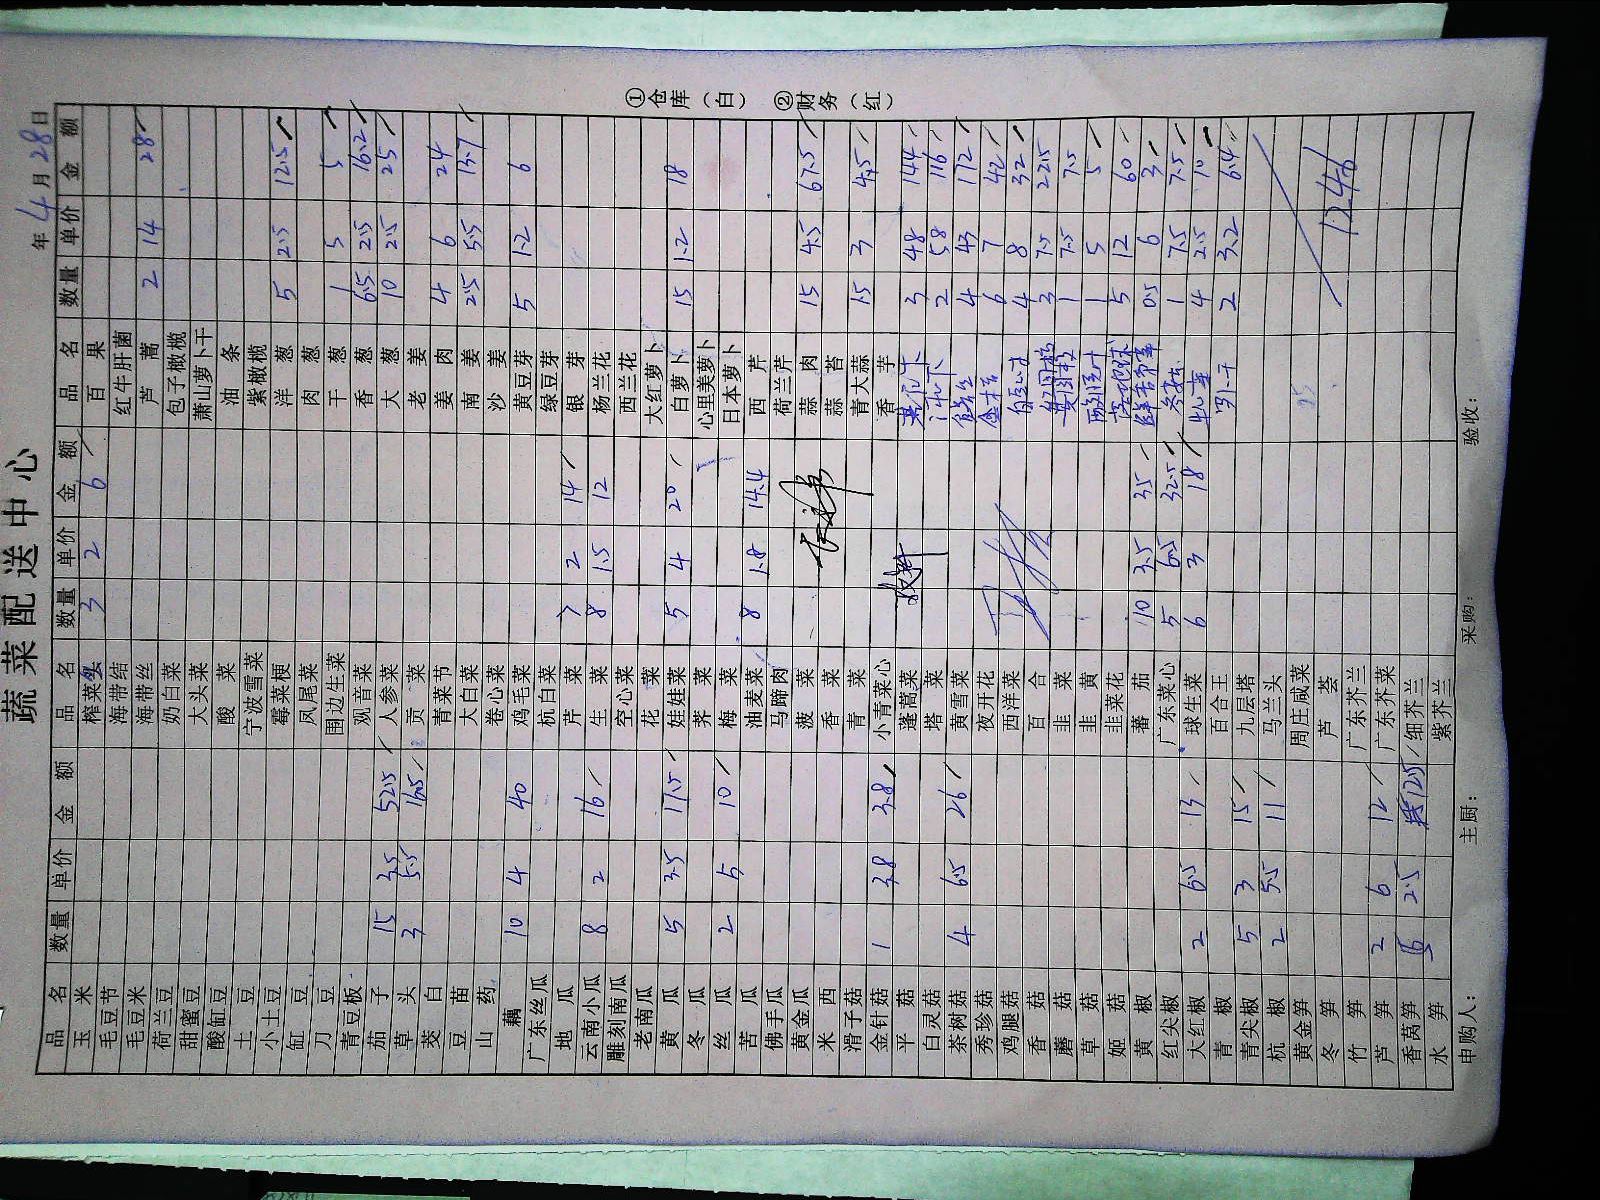 蔬菜配送中心
年4月28日
品名 数量 单价 金额 品名 数量 单价 金额 品名 数量 单价 金额
玉米 榨菜 3 2 6 百果
毛豆节 海带结 红牛肝菌
毛豆米 海带丝 芦蒿 2 14 28
荷兰豆 奶白菜 包子橄榄
甜蜜豆 大头菜 萧山萝卜干
酸缸豆 酸菜 油条
土豆 宁波雪菜 紫橄榄
小土豆 霉菜梗 洋葱 5 2.5 12.5
缸豆 凤尾菜 肉葱
刀豆 围边生菜 干葱 1 5 5
青豆板 观音菜 香葱 6.5 2.5 16.2
茄子 15 3.5 52.5 人参菜 大葱 10 2.5 25
草头 3 5.5 16.5 贡菜 老姜
茭白 青来节 姜肉 4 6 24
豆苗 大白菜 南姜 2.5 5.5 13.7
山药 卷心菜 沙姜
藕 10 4 40 鸡毛菜 黄豆芽 5 1.2 6
广东丝瓜 杭白菜 绿豆芽
地瓜 芹菜 7 2 14 银芽
云南小瓜 8 2 16 生菜 8 1.5 12 杨兰花
雕刻南瓜 空心菜 西兰花
老南瓜 花菜 大红萝卜
黄瓜 5 3.5 17.5 娃娃菜 5 4 20 白萝卜 15 1.2 18
冬瓜 荠菜 心里美萝卜
丝瓜 2 5 10 梅菜 日本萝卜
苦瓜 油麦菜 8 1.8 14.4 西芹
佛手瓜 马蹄肉 荷兰芹
黄金瓜 菠菜 蒜肉 15 4.5 67.5
米西 香菜 蒜苔
滑子菇 青菜 青大蒜 1.5 3 4.5
金针菇 1 3.8 3.8 小青菜心 香芋
平菇 蓬蒿菜 3 48 144
白灵菇 塔菜 2 58 116
茶树菇 4 6.5 26 黄雪菜 4 43 172
秀珍菇 夜开花 6 7 42
鸡腿菇 西洋菜 4 8 32
香菇 百合 3 7.5 22.5
蘑菇 韭菜 1 7.5 7.5
草菇 韭黄 1 5 5
姬菇 韭菜花 5 12 60
黄椒 蕃茄 10 3.5 35 0.5 6 3
红尖椒 广东菜心 5 6.5 32.5 1 7.5 7.5
大红椒 2 6.5 13 球生菜 6 3 18 4 2.5 10
青椒 百合王 2 3.2 6.4
青尖椒 5 3 15 九层塔
杭椒 2 5.5 11 马兰头
黄金笋 周庄咸菜
冬笋 芦荟 1246
竹笋 广东芥兰
芦笋 2 6 12 广东芥菜
香莴笋 5 2.5 12.5 细芥兰
水笋 紫芥兰
申购人： 主厨： 采购： 验收：
①仓库（白） ②财务（红）